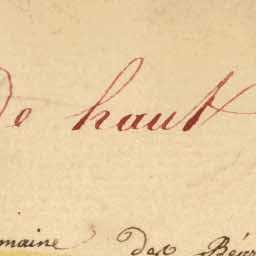 de haut
maine des Bén